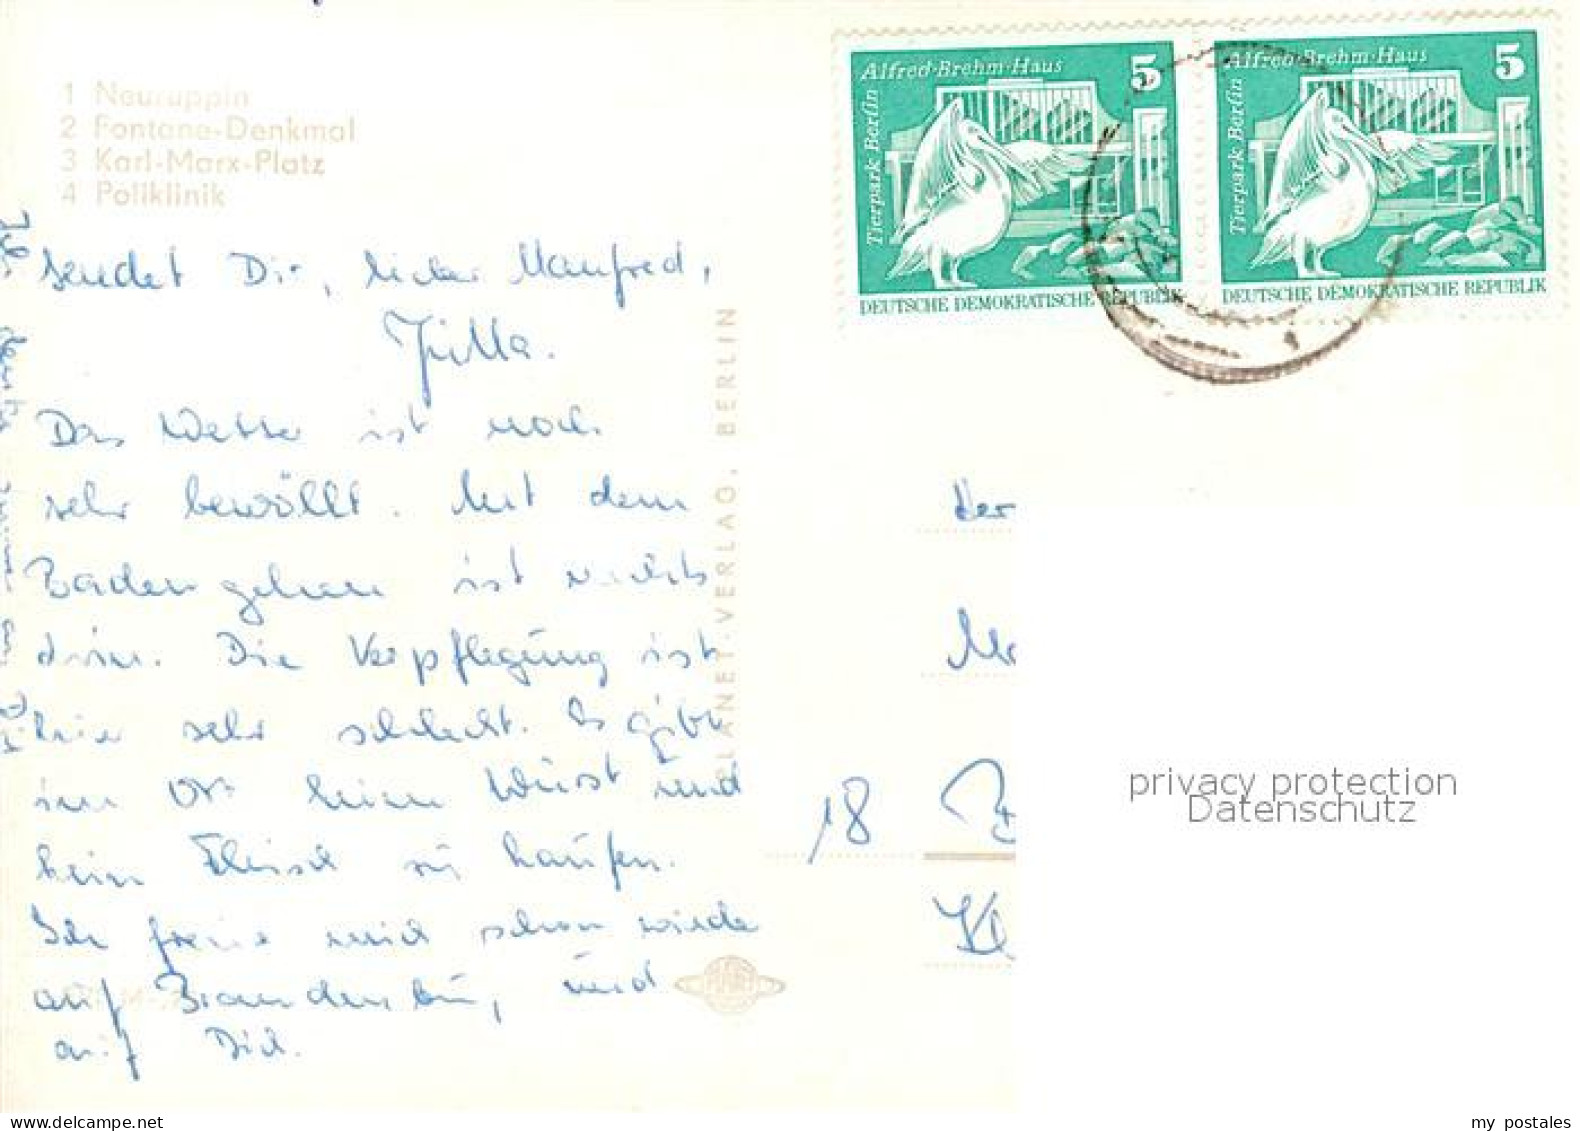 1 Neuruppin
2 Fontane-Denkmal
3 Karl-Marx-Platz
4 Poliklinik
sendet Dir, lieber Manfred,
Jutta.
Das Wetter ist noch
sehr bewölkt. Mit dem
Baden gehen ist nichts
drin. Die Verpflegung ist
hier sehr schlecht. Es gibt
im Ort keine Wurst und
kein Fleisch zu kaufen.
Ich freue mich schon wieder
auf Brandenburg, und
auf Dich.
Ich denke immer an Dich
PLANET-VERLAG, BERLIN
Alfred-Brehm-Haus 5
Tierpark Berlin
DEUTSCHE DEMOKRATISCHE REPUBLIK
Alfred-Brehm-Haus 5
Tierpark Berlin
DEUTSCHE DEMOKRATISCHE REPUBLIK
18
privacy protection
Datenschutz
my postales